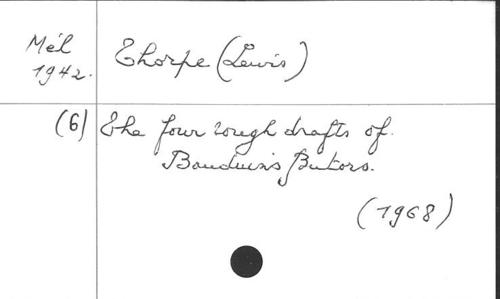 Mél
1942.
Thorpe (Lewis)
(6) The four rough drafts of
Bauduins Butors.
(1968)